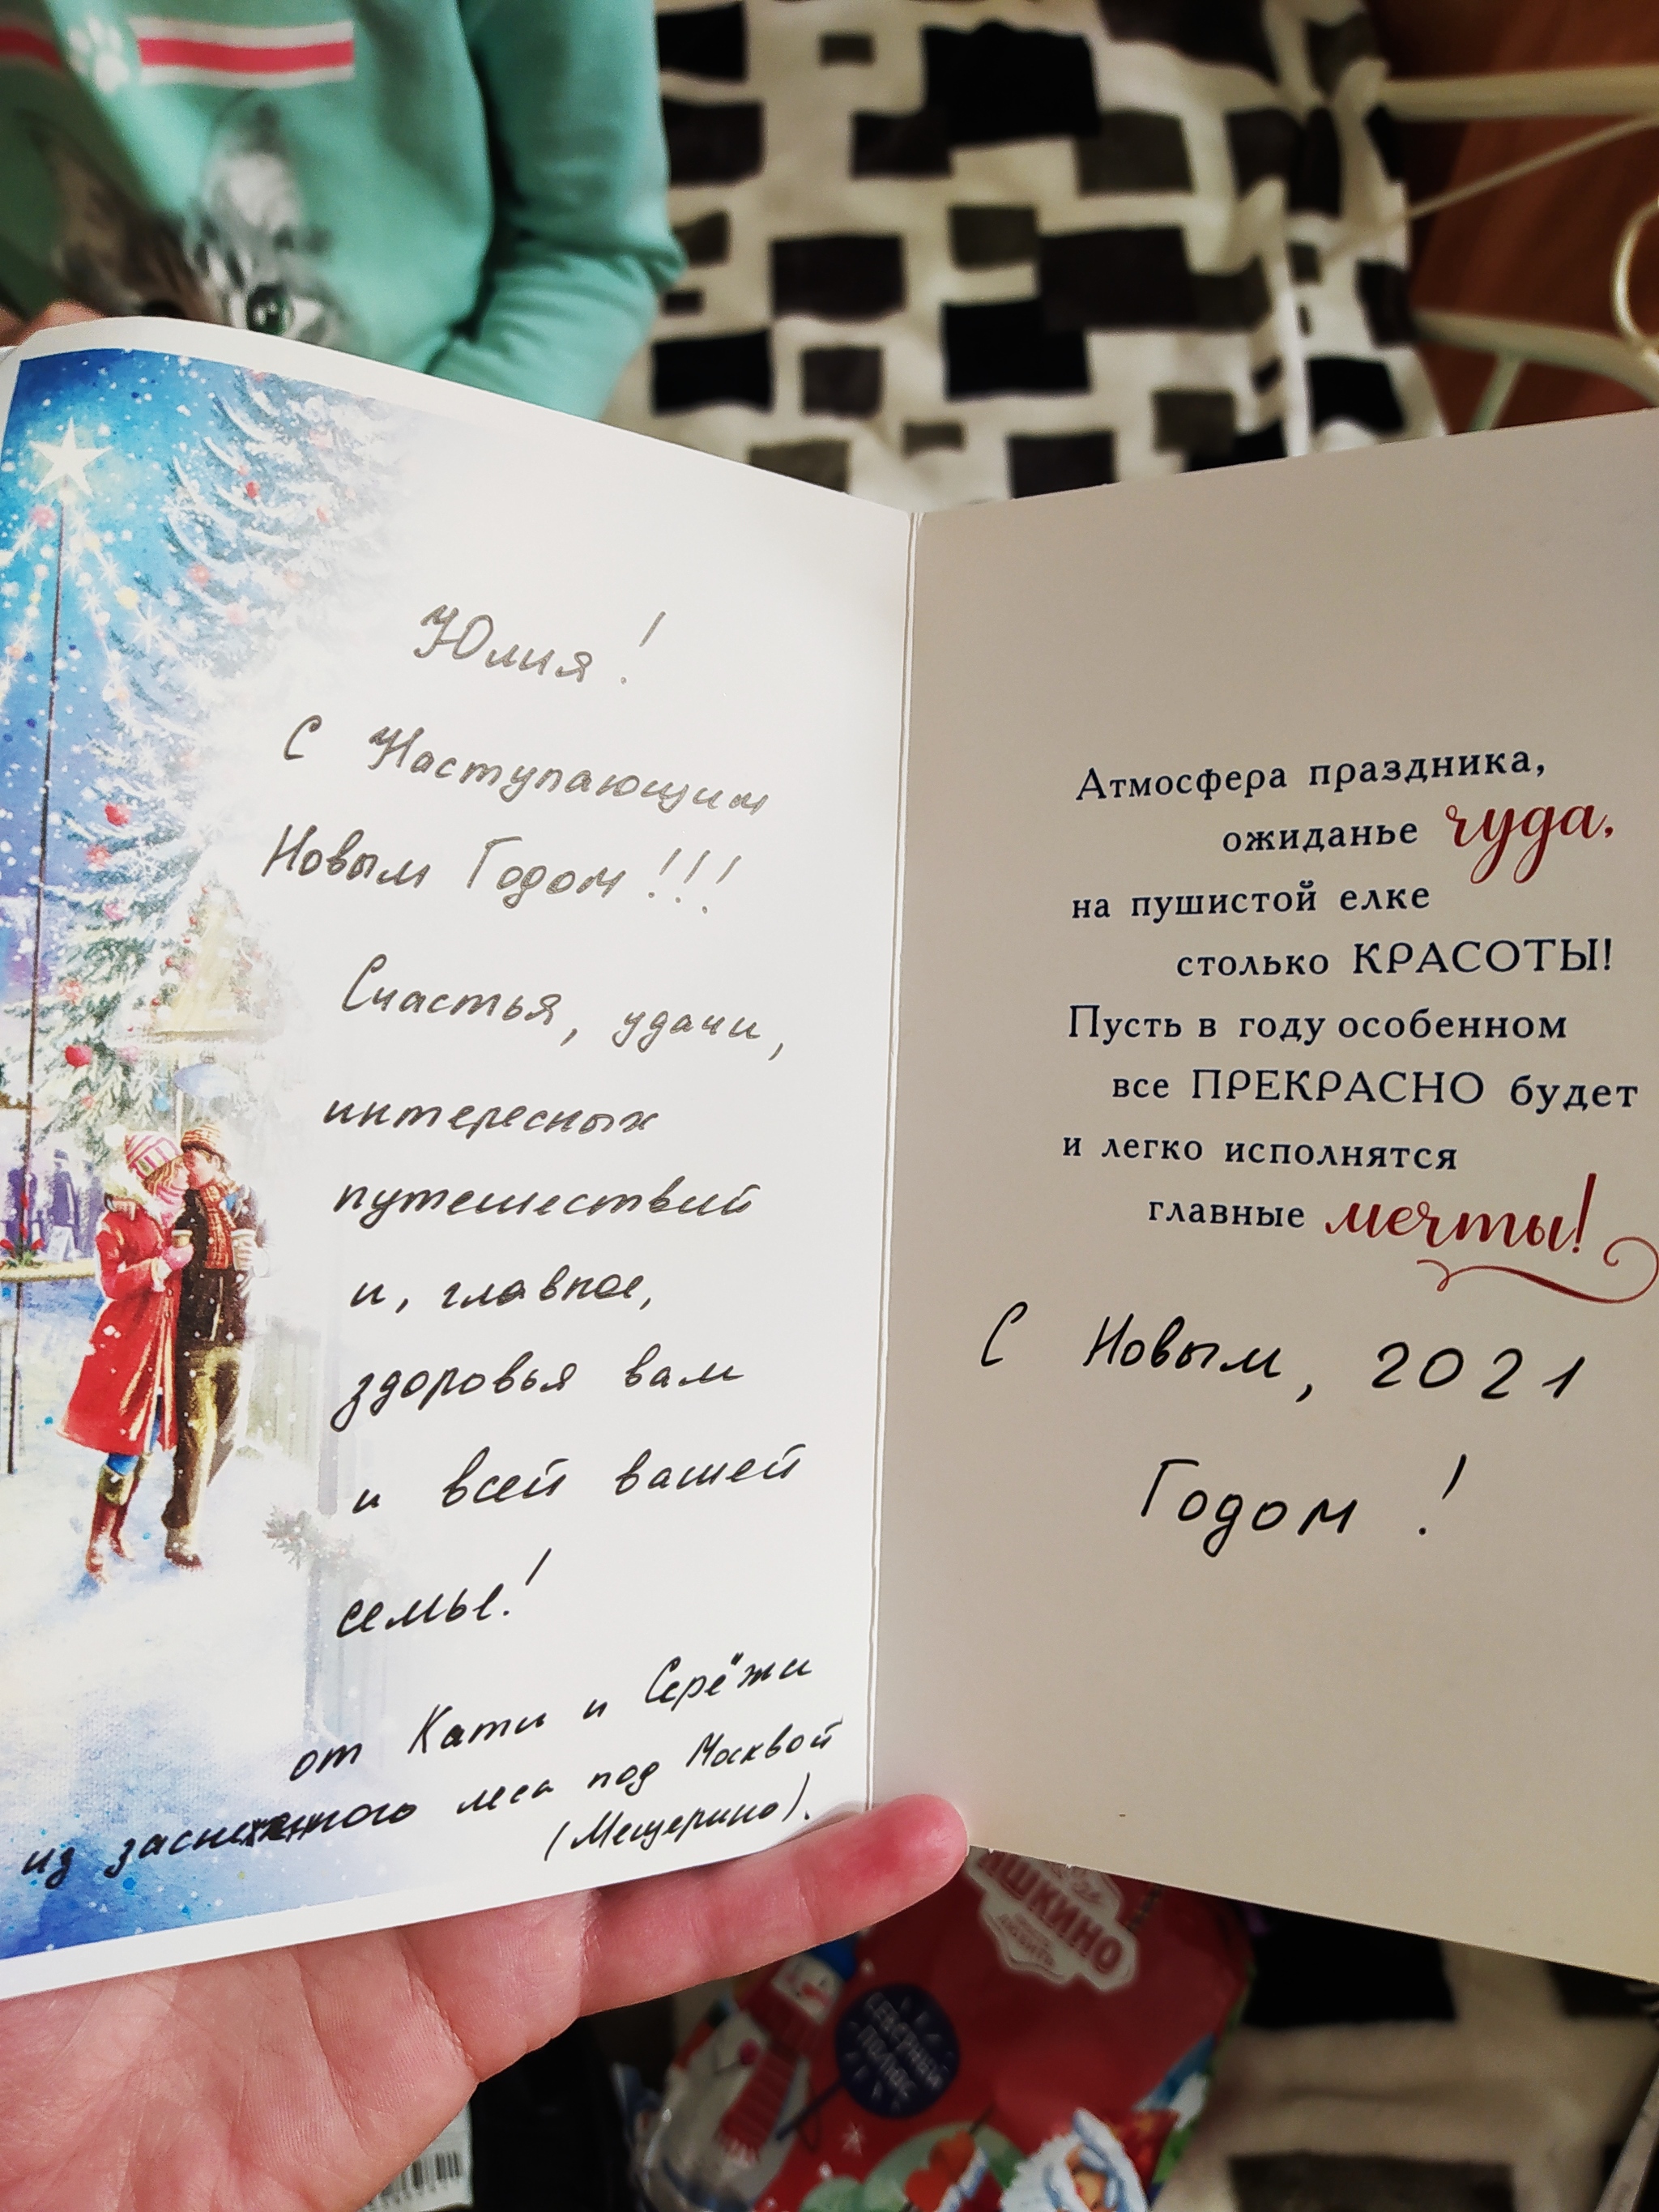 Юлия!
С Наступающим
Новым Годом!!!
Счастья, удачи,
интересных
путешествий
и, главное,
здоровья вам
и всей вашей
семье!
от Кати и Серёжи
из леса под Москвой
(Мещерино).
Атмосфера праздника,
ожиданье чуда,
на пушистой елке
столько КРАСОТЫ!
Пусть в году особенном
все ПРЕКРАСНО будет
и легко исполнятся
главные мечты!
С Новым, 2021
Годом!
ЯШКИНО
СЕВЕРНЫЙ
ПОЛЮС